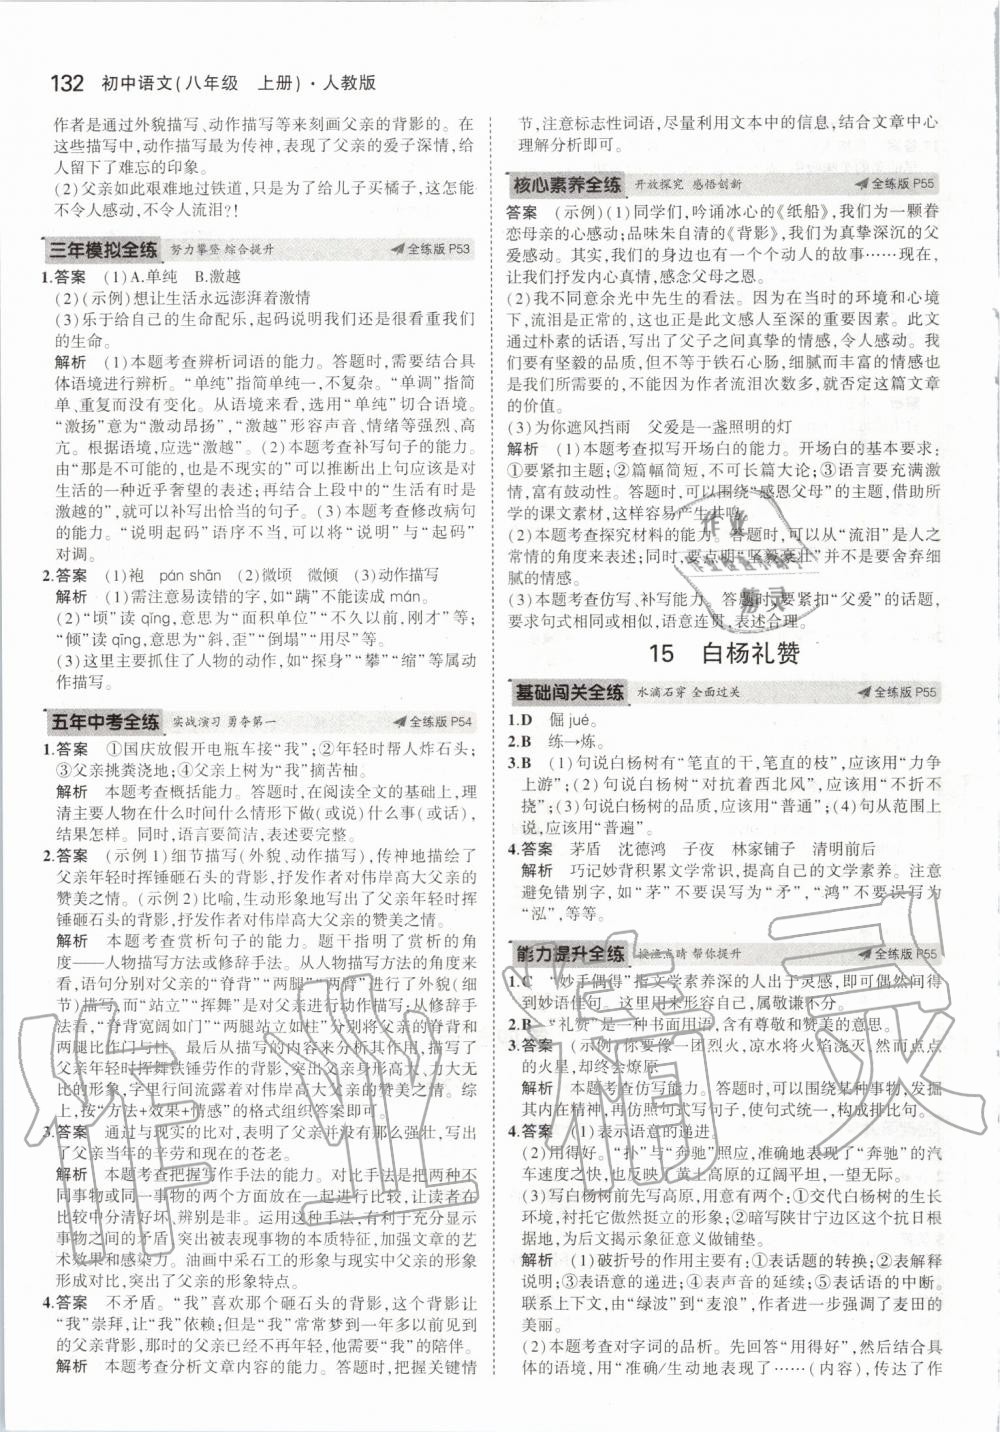 132 初中语文(八年级　上册)·人教版
作者是通过外貌描写、动作描写等来刻画父亲的背影的。在
这些描写中,动作描写最为传神,表现了父亲的爱子深情,给
人留下了难忘的印象。
(2)父亲如此艰难地过铁道,只是为了给儿子买橘子,这怎能
不令人感动,不令人流泪?!
三年模拟全练 努力攀登 综合提升 全练版 P53
1.答案　(1)A.单纯　B.激越
(2)(示例)想让生活永远澎湃着激情
(3)乐于给自己的生命配乐,起码说明我们还是很看重我们
的生命。
解析　(1)本题考查辨析词语的能力。答题时,需要结合具
体语境进行辨析。“单纯”指简单纯一,不复杂。“单调”指简
单、重复而没有变化。从语境来看,选用“单纯”切合语境。
“激扬”意为“激动昂扬”,“激越”形容声音、情绪等强烈、高
亢。根据语境,应选“激越”。(2)本题考查补写句子的能力。
由“那是不可能的,也是不现实的”可以推断出上句应该是对
生活的一种近乎奢望的表述;再结合上段中的“生活有时是
激越的”,就可以补写出恰当的句子。(3)本题考查修改病句
的能力。“说明起码”语序不当,可以将“说明”与“起码”
对调。
2.答案　(1)袍　pán shān　(2)微顷　微倾　(3)动作描写
解析　(1)需注意易读错的字,如“蹒”不能读成 mán。
(2)“顷”读 qǐng,意思为“面积单位”“不久以前,刚才”等;
“倾”读 qīng,意思为“斜,歪”“倒塌”“用尽”等。
(3)这里主要抓住了人物的动作,如“探身”“攀”“缩”等属动
作描写。
五年中考全练 实战演习 勇夺第一 全练版 P54
1.答案　①国庆放假开电瓶车接“我”;②年轻时帮人炸石头;
③父亲挑粪浇地;④父亲为“我”摘苦柚。
解析　本题考查概括能力。答题时,在阅读全文的基础上,理
清主要人物在什么时间什么情形下做(或说)什么事(或话),
结果怎样。同时,语言要简洁,表述要完整。
2.答案　(示例1)细节描写(外貌、动作描写),传神地描绘了
父亲年轻时挥锤砸石头的背影,抒发作者对伟岸高大父亲的
赞美之情。(示例2)比喻,生动形象地写出了父亲年轻时挥
锤砸石头的背影,抒发作者对伟岸高大父亲的赞美之情。
解析　本题考查赏析句子的能力。题干明示了赏析的角
度——人物描写方法或修辞手法。从人物描写方法的角度来
看,语句分别对父亲的“脊背”“两腿”“两臂”进行了外貌(细
节)描写,而“站立”“挥舞”是对父亲进行动作描写;从修辞手
法看,“脊背宽阔如门”“两腿站立如柱”分别将父亲的脊背和
两腿比作门与柱。最后从描写的内容来分析其效果,写出了
父亲年轻时挥舞铁锤劳作的背影,突出父亲身形高大、力量无
比的形象,字里行间流露着对伟岸高大父亲的赞美之情。综
上,按“方法+效果+情感”的格式组织答案即可。
3.答案　通过与现实的比对,表明了父亲并没有想象中强大,写出
了父亲当年的辛劳和现在的苍老。
解析　本题考查把握写作手法的能力。对比手法是把两种不
同事物或同一事物的两个方面放在一起进行比较,让读者在比
较中分清好坏、辨别是非。运用这种手法,有利于充分显示
事物之间的矛盾,突出被表现事物的本质特征,加强文章的艺
术效果和感染力。油画中采石工的形象与现实中父亲的形象
形成对比,突出了父亲的形象。
4.答案　不矛盾。“我”喜欢那个砸石头的背影,这个背影让
“我”崇拜,让“我”依赖;但是“我”常常想到一年多以前见到的
父亲背影,那时的父亲已快年老,他需要“我”的陪伴。
解析　本题考查分析文章内容的能力。答题时,把握关键情
节,注意标志性词语,尽量利用文本中的信息,结合文章中心
理解分析即可。
核心素养全练 开放探究 感悟创新 全练版 P55
答案　(示例)(1)同学们,吟诵冰心的《纸船》,我们为一颗眷
恋母亲的心感动;品味朱自清的《背影》,我们为真挚深沉的父
爱感动。其实,我们的身边也有一个个动人的故事……现在,
让我们抒发内心真情,感念父母之恩。
(2)我不同意余光中先生的看法。因为在当时的环境和心境
下,流泪是正常的,这也是此文感人至深的重要因素。此文
通过朴素的话语,写出了父子之间真挚的情感,令人感动。我
们要有坚毅的品质,但不能于铁石心肠,细腻而丰富的情感也
是我们所需要的,不能因为作者流泪次数多,就否定这篇文章
的价值。
(3)为你遮风挡雨　父爱是一盏照明的灯
解析　(1)本题考查拟写开场白的能力。开场白的基本要求:
①要紧扣主题;②篇幅简短,不可长篇大论;③语言要充满激
情,富有鼓动性。答题时,可以围绕“感恩父母”的主题,借助所
学的课文素材,这样更容易产生共鸣。
(2)本题考查探究材料的能力。答题时,可以从“流泪”是人之
常情的角度来表述;同时,要点明“坚毅衰壮”并不是要舍弃细
腻的情感。
(3)本题考查仿写、补写能力。答题时要根据“父爱”的话题,
要求句式相同或相似,语意连贯,表述合理。
15　白杨礼赞
基础闯关全练 水滴石穿 全面过关 全练版 P55
1.D　倔 jué。
2.B　练→炼。
3.B　(1)句说白杨树有“笔直的干,笔直的枝”,应该用“力争
上游”;(2)句说白杨树“对抗着西北风”,应该用“不折不
挠”;(3)句说白杨树的品质,应该用“普通”;(4)句从范围上
说,应该用“普遍”。
4.答案　茅盾　沈德鸿　子夜　林家铺子　清明前后
解析　巧记妙背积累文学常识,提高自己的文学素养。注意
避免错别字,如“茅”不要误写为“矛”,“鸿”不要误写为
“泓”,等等。
能力提升全练 全练版 P55
1.C　“妙手偶得”指文学素养深的人出于灵感,即可偶然间得
到妙语佳句。这里用来形容自己,属敬谦不分。
2.B　“礼赞”是一种书面用语,含有尊敬和赞美的意思。
3.答案　(示例)你要像一团烈火,凉水可将火焰浇灭,然而点点
的火星,却终会燎原
解析　本题考查仿写能力。答题时,可以围绕某种事物,发掘
其内在精神,再仿照前文句式写句子,使语意统一,构成排比句。
4.答案　(1)表示语意的递进。
(2)用得好。“扑”与“奔驰”照应,准确地表现了“奔驰”的汽
车速度之快,也反映了黄土高原的辽阔平坦,一望无际。
(3)写白杨树前先写高原,用意有两个:①交代白杨树的生长
环境,衬托它傲然挺立的形象;②暗写陕甘宁边区这一抗日根
据地,为后文揭示象征意义做铺垫。
解析　(1)破折号的作用主要有:①表话题的转换;②表解释
说明;③表语意的递进;④表声音的延续;⑤表话语的中断。
联系上下文,由“绿波”到“麦浪”,作者进一步强调了麦田的
美丽。
(2)本题考查对字词的品析。先回答“用得好”,然后结合具
体的语境,用“准确/生动地表现了……(内容),传达了作